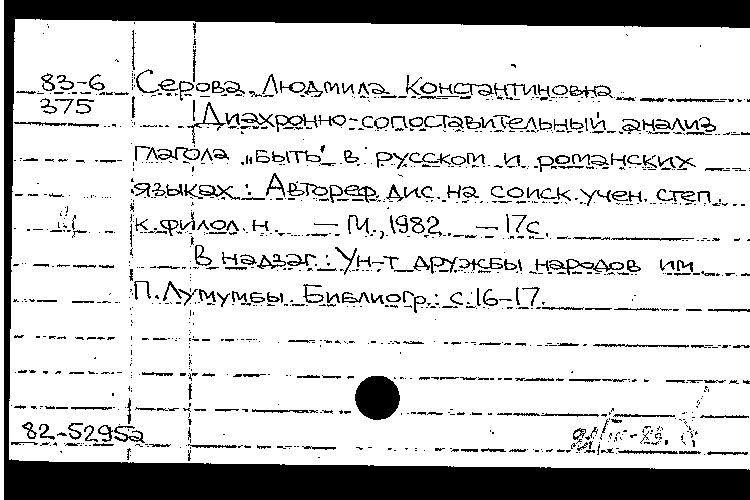 83-6 Серова Людмила Константиновна
375 Диахронно-сопоставительный анализ
глагола „быть" в русском и романских
языках: Автореф. дис. на соиск. учен. степ.
к. филол. н. — М., 1982. — 17с.
В надзаг.: Ун-т дружбы народов им.
П. Лумумбы. Библиогр.: с.16-17.
82-52952